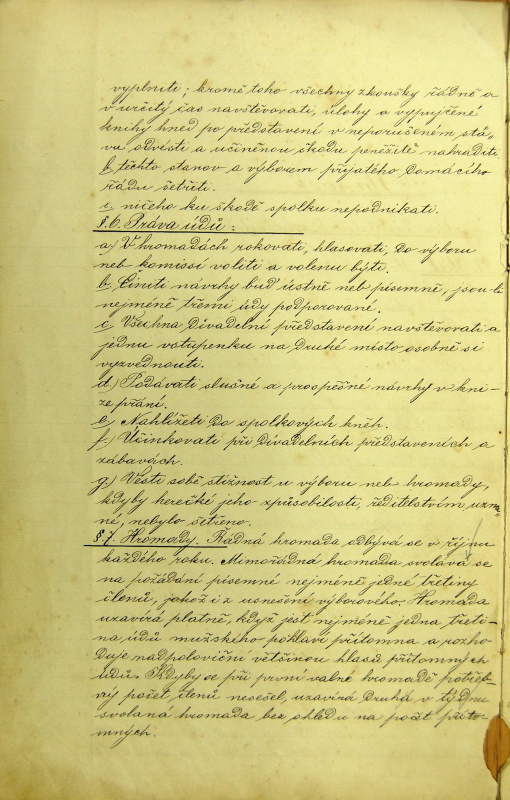 vyplniti; kromě toho všechny zkoušky řádně a
v určitý čas navštěvovati, úlohy a vypujčené
knihy hned po představení v neporušeném sta-
vu odvésti a učiněnou škodu peněžitě nahraditi
b, těchto stanov a výborem přijatého Domácího
řádu šetřiti.
c, ničeho ku škodě spolku nepodnikati.
§. 6. Práva údů:
a) V hromadách rokovati, hlasovati, do výboru
neb komissí voliti a volenu býti.
b. Činiti návrhy buď ústně neb písemně, jsou-li
nejméně třemi údy podporované.
c, Všechna Divadelní představení navštěvovati a
jednu vstupenku na druhé místo osobně si
vyzvednouti.
d.) Podávati slušné a prospěšné návrhy v kni-
ze přání.
e) Nahlížeti do spolkových kněh.
f.) Účinkovati při Divadelních představeních a
zábavách.
g.) Vésti sobě stížnost u výboru neb hromady,
kdyby herečké jeho způsobilosti, ředitelstvím uzna-
né, nebylo šetřeno.
§ 7. Hromady. Řádná hromada odbývá se v říjnu
každého roku. Mimořádná hromada svolává se
na požádání písemné nejméně jedné třetiny
členů, jakož i z usnešení výborového. Hromada
uzavírá platně, když jest nejméně jedna třeti-
na údů mužského pohlaví přítomna a rozho-
duje nadpoloviční většinou hlasů přítomných
údů. Kdyby se při první valné hromadě potřeb-
ný počet členů nesešel, uzavírá druhá v týdnu
svolaná hromada bez ohledu na počet příto-
mných.